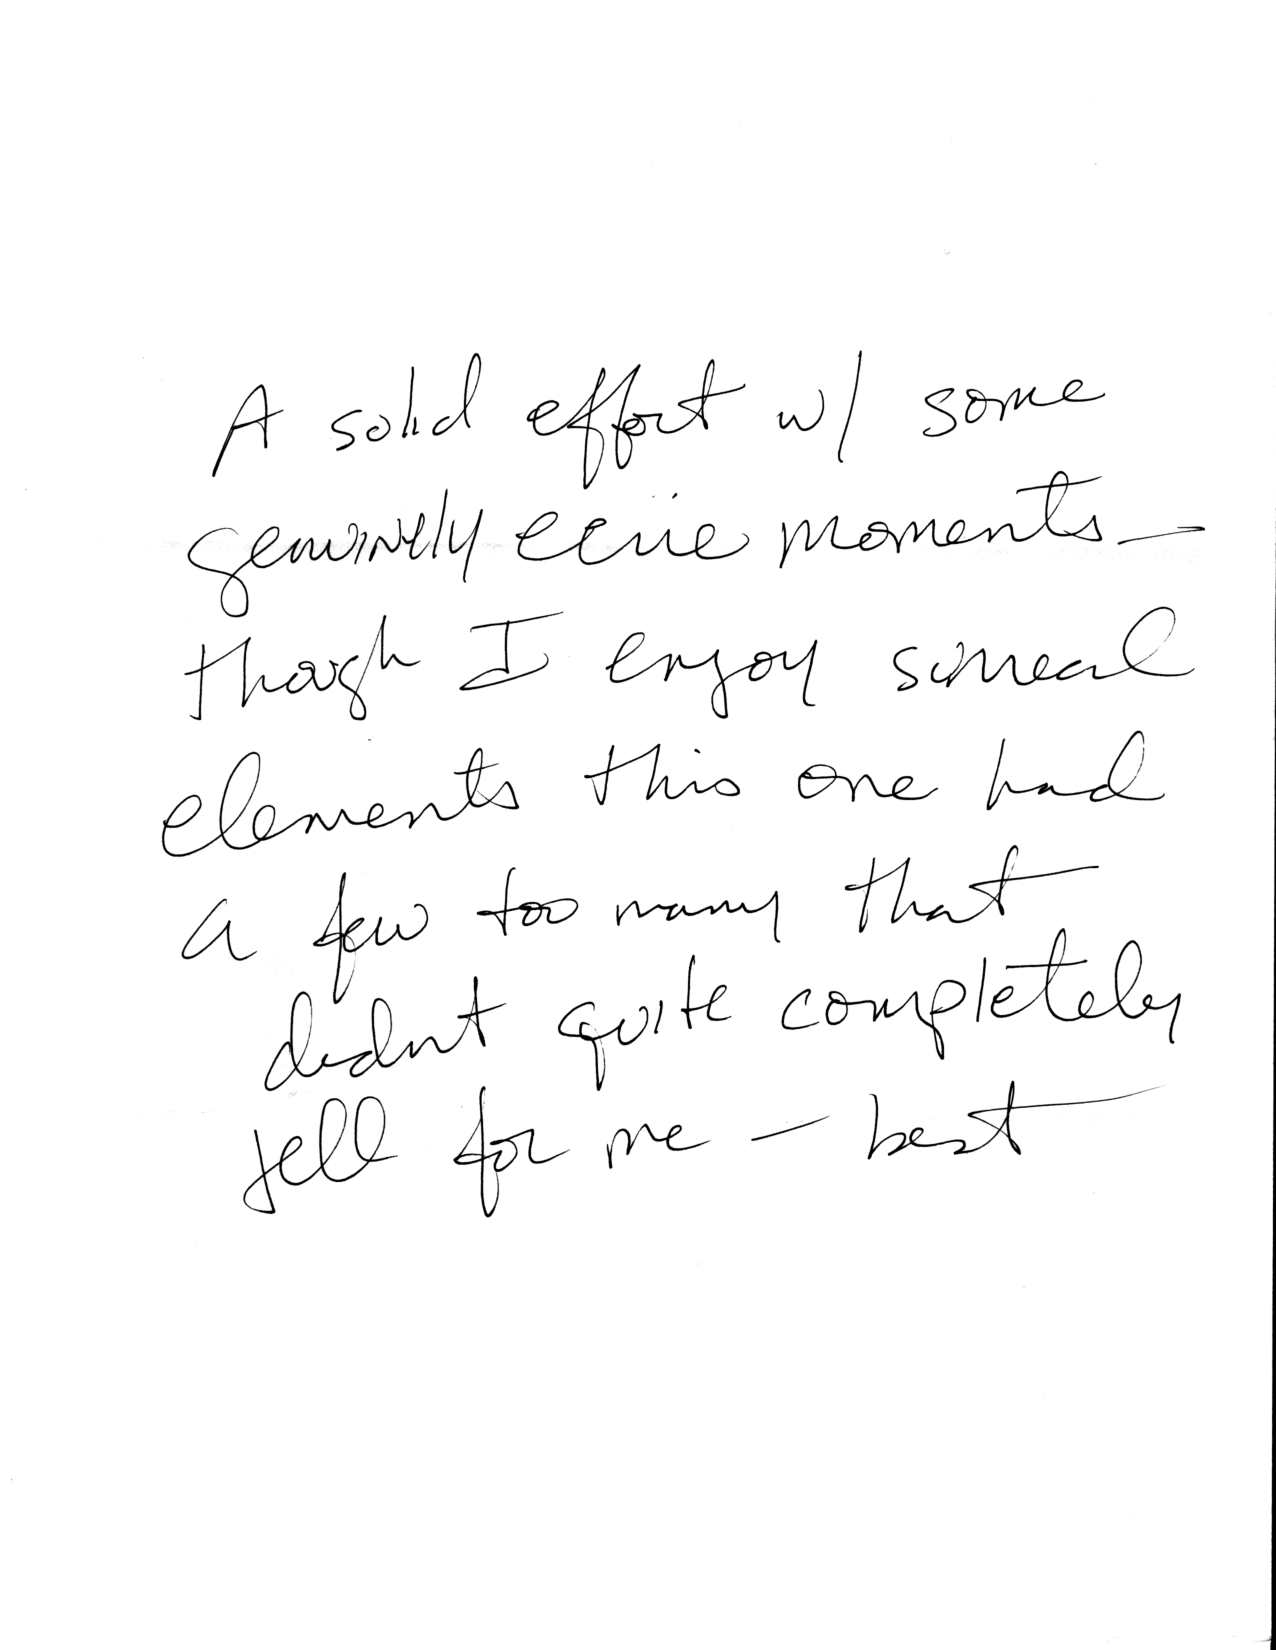 A solid effort w/ some
genuinely eerie moments –
though I enjoy surreal
elements this one had
a few too many that
didnt quite completely
jell for me – best